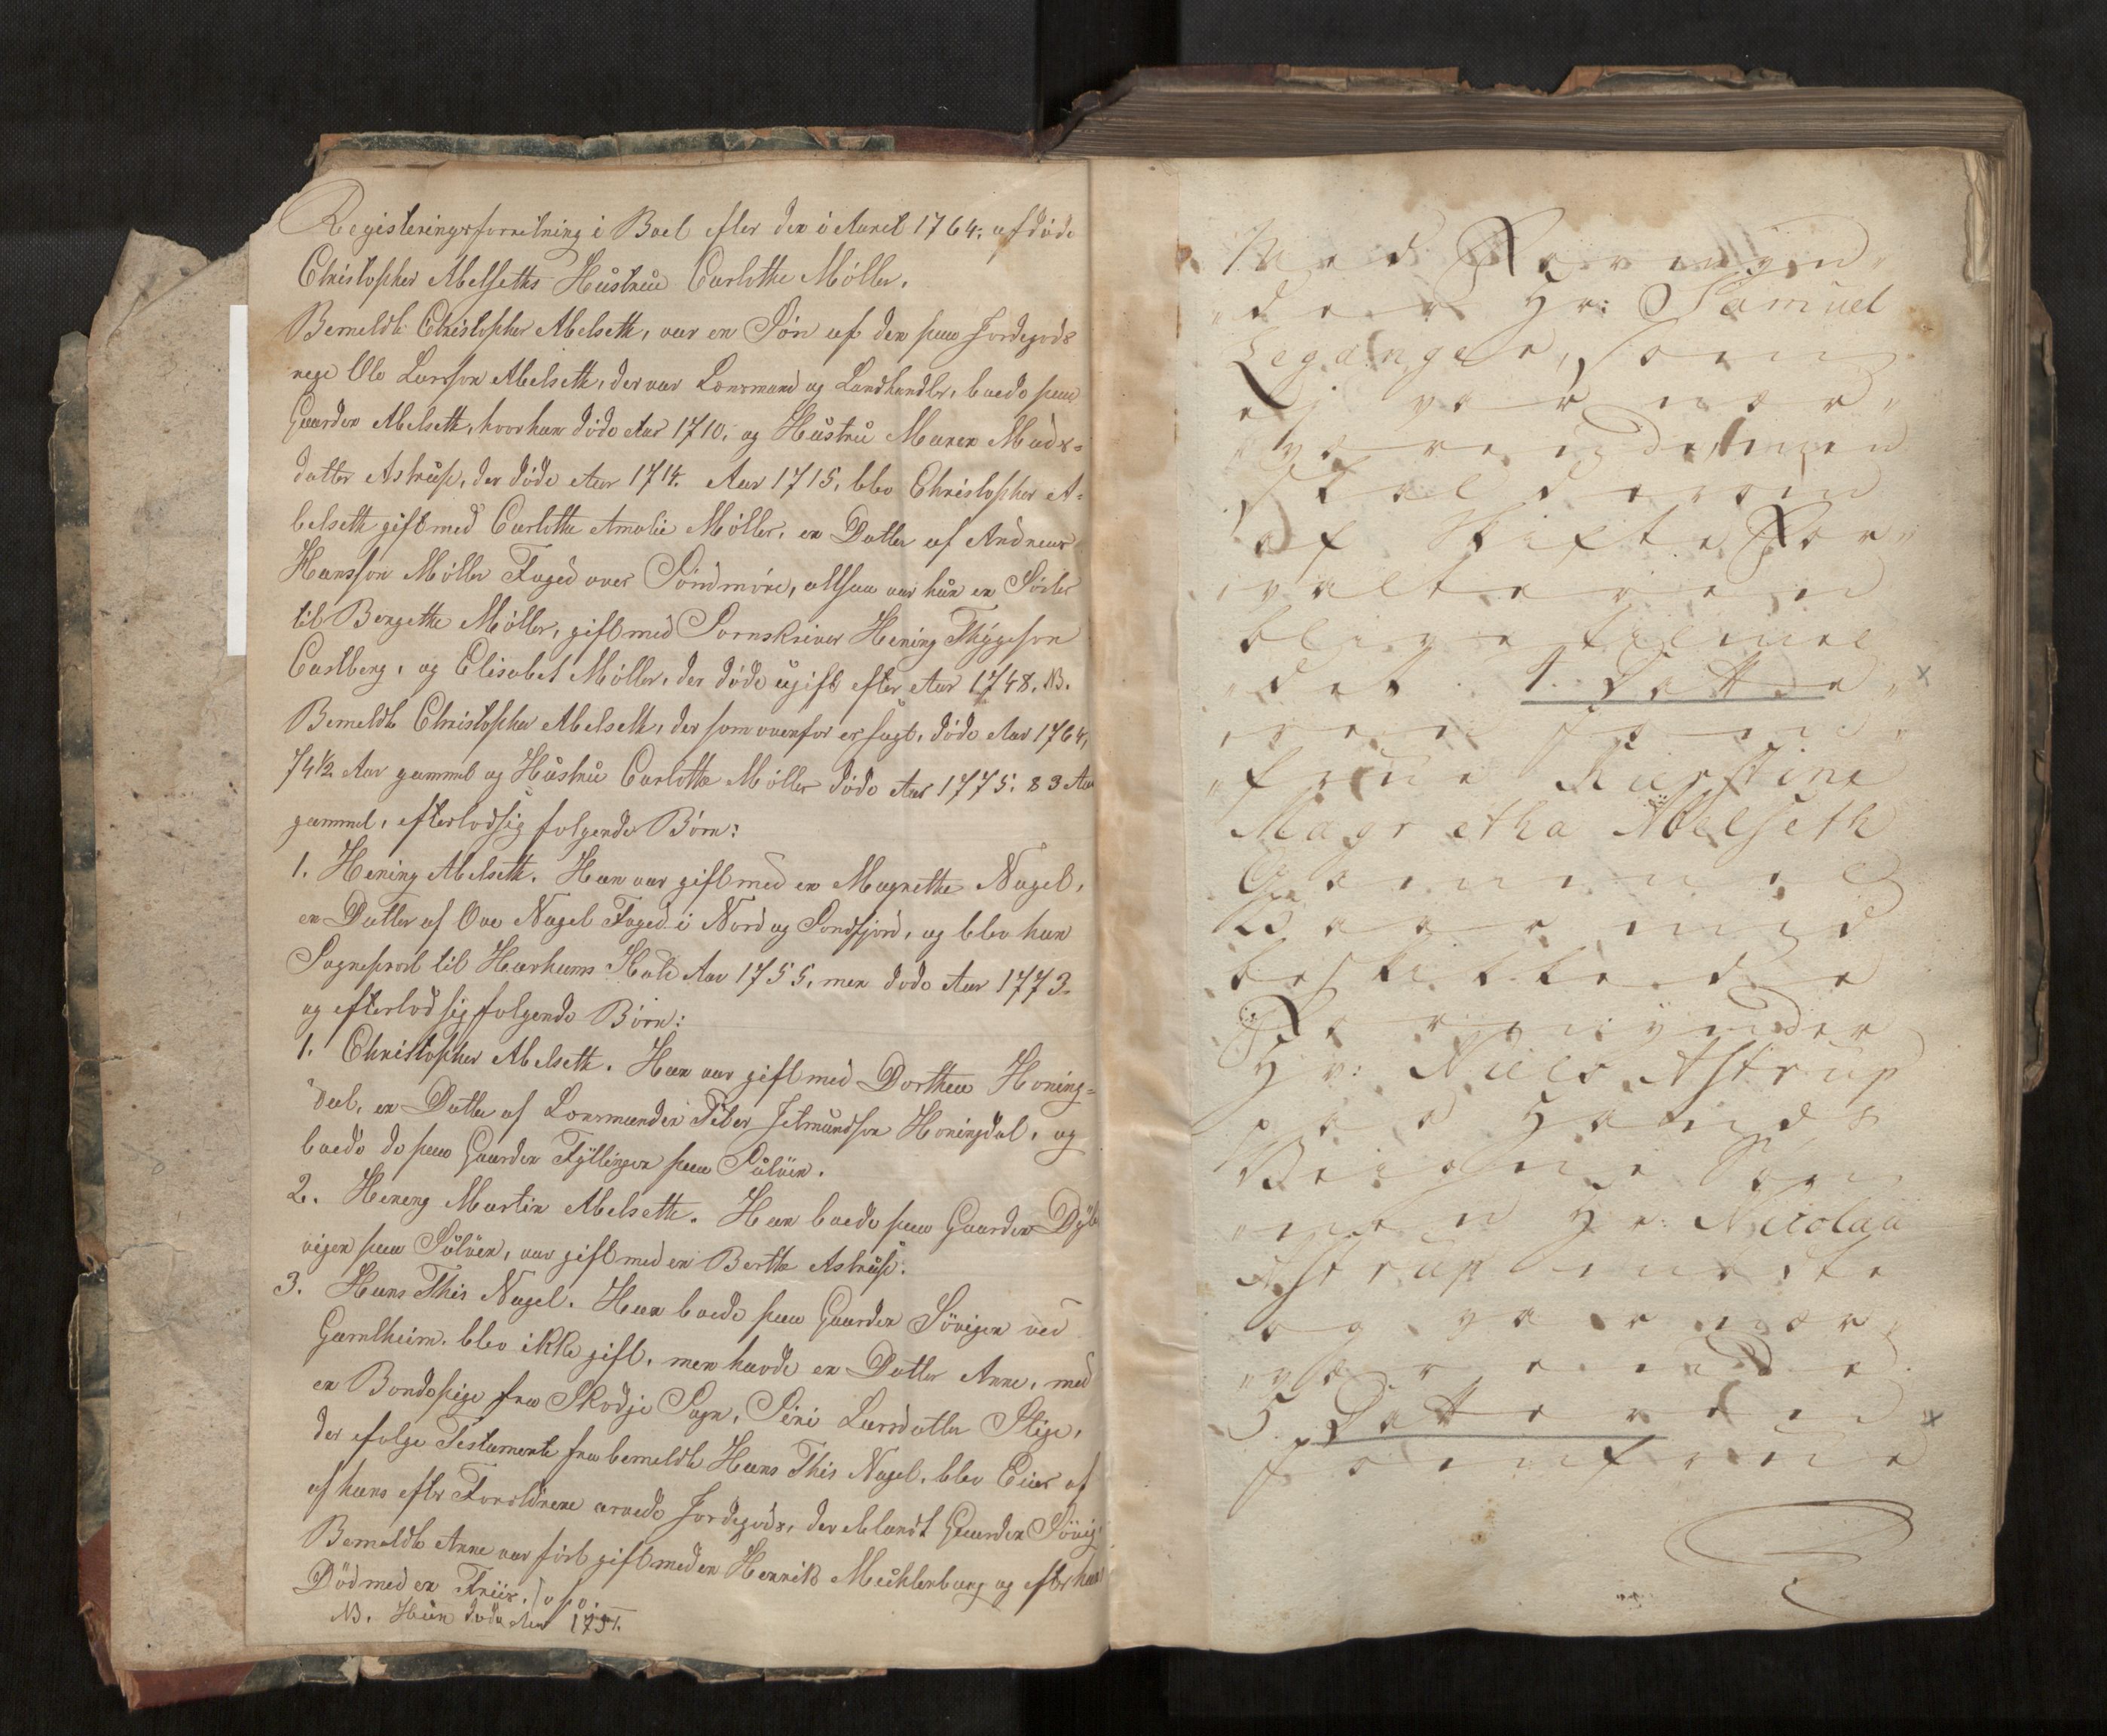 Registeringsforretning i Boel efter den i Aaret 1764. afdöde
Christopher Abelseths Hüstrue Carlotha Möller.
Bemeldte Christopher Abelseth, var en Sön af den paa Jordegods
rige Ole Larsson Abelseth, der var Lænsmand og Landhandler, boede paa
Gaarden Abelseth, hvor han döde Aar 1710, og Hüstrü Maren Mads-
datter Astrüp, der döde Aar 1714. Aar 1715, blev Christopher A-
belseth gift med Carlotha Amalie Möller, en Datter af Andreas
Hansson Möller Foged over Söndmöre, altsaa var hün en Söster
til Bergethe Möller, gift med Sornskriver Hening Thÿgeson
Castberg, og Elisabet Möller, der döde ügift efter Aar 1748. NB.
Bemeldte Christopher Abelseth, der som ovenfor er sagt, döde Aar 1764,
74½ Aar gammel og Hüstrü Carlotta Möller döde Aar 1775. 83 Aar
gammel, efterlod sig folgende Börn:
1. Hening Abelseth. Han var gift med en Magrethe Nagel,
en Datter af Ove Nagel Foged i Nord og Sondfjord, og blev han
Sogneprest til Harhams Kald Aar 1755, men dode Aar 1773.
og efterlod sig folgende Börn:
1. Christopher Abelseth. Han var gift med Dorthea Honing-
dal, en Datter af Lonsmanden Peter Jetmündson Honingdal, og
boede de paa Gaarden Fÿllingen paa Sülöen.
2. Hening Martin Abelseth. Han boede paa Gaarden Dÿb
vigen paa Sülöen, var gift med en Berthe Astrüp.
3. Hans This Nagel. Han boede paa Gaarden Sövigen ved
Gamlheim. blev ikke gift, men havde en Datter Anne, med
en Bondepige fra Skodje Sogn, Siri Larsdatter Stige,
der ifolge Testamente fra bemeldte Hans This Nagel, blev Eier af
af hans efter Foreldrene arvede Jordegods, der iblandt Gaarden Sövig
Bemeldte Anne var först gift med en Henrik Mechlenburg og efter hans
Död med en Friis. /: o: s: o:
NB. Hün döde Aar 1751.
Med Formÿn„
„der Hr: Samuel
Leganger, som
ej var nær„
„værende, men
skal derom
af Skifte For„
„valteren
blive tilmel
„det. 4. Datte„
„ren Jom„
„frue Kirstine
Magretha Abelseth
Gammel
Aar med
beskikkede
Formÿnder
Hr: Niels Astrup
paa Hands
Veigne Søn„
„nen Hr: Nicolaÿ
Astrup mötte
og var nær„
„værende
5. Datteren
Jomfrue